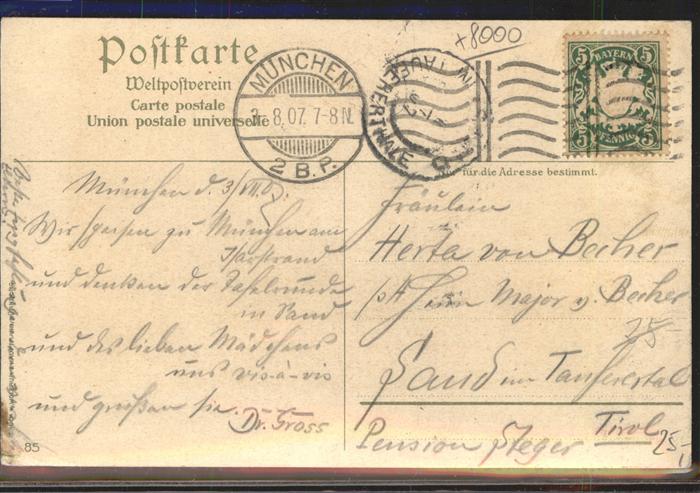 +8000
Postkarte
Weltpostverein
Carte postale
Union postale universelle
MÜNCHEN
3. 8. 07. 7-8 N.
2 B.P.
BAYERN
5 5
5 5
PFENNIG
für die Adresse bestimmt.
München d. 3/VIII.07
Wir speisen zu München am
Isarstrand
und denken der Tafelrunde
in Sand
und des lieben Mädchens
uns vis-à-vis
und grüßen sie.
Dr. Gross
85
Fräulein
Herta von Becher
Herrn Major v. Becher
25-
Sand im Taufferertal
Tirol
Pension Steger
25,